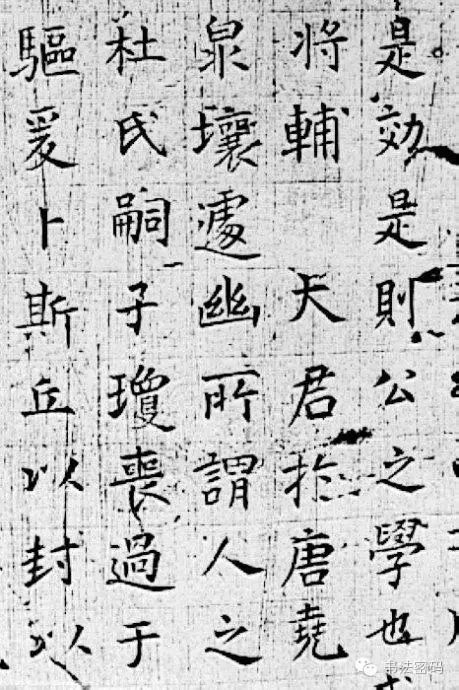 是効是則公之學也
將輔 天君於唐堯
泉壤遽幽所謂人之
杜氏嗣子瓊喪過于
驅爰卜斯丘以封以
书法密码